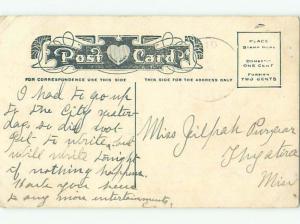 Post Card
PLACE
STAMP HERE
DOMESTIC
ONE CENT
FOREIGN
TWO CENTS
FOR CORRESPONDENCE USE THIS SIDE
THIS SIDE FOR THE ADDRESS ONLY
I had to go up
to the City yester-
day so did not
get to write, but
will write tonight
if nothing happens.
Have you been
to any more entertainments.
Miss Puryear
Thyatira
Miss